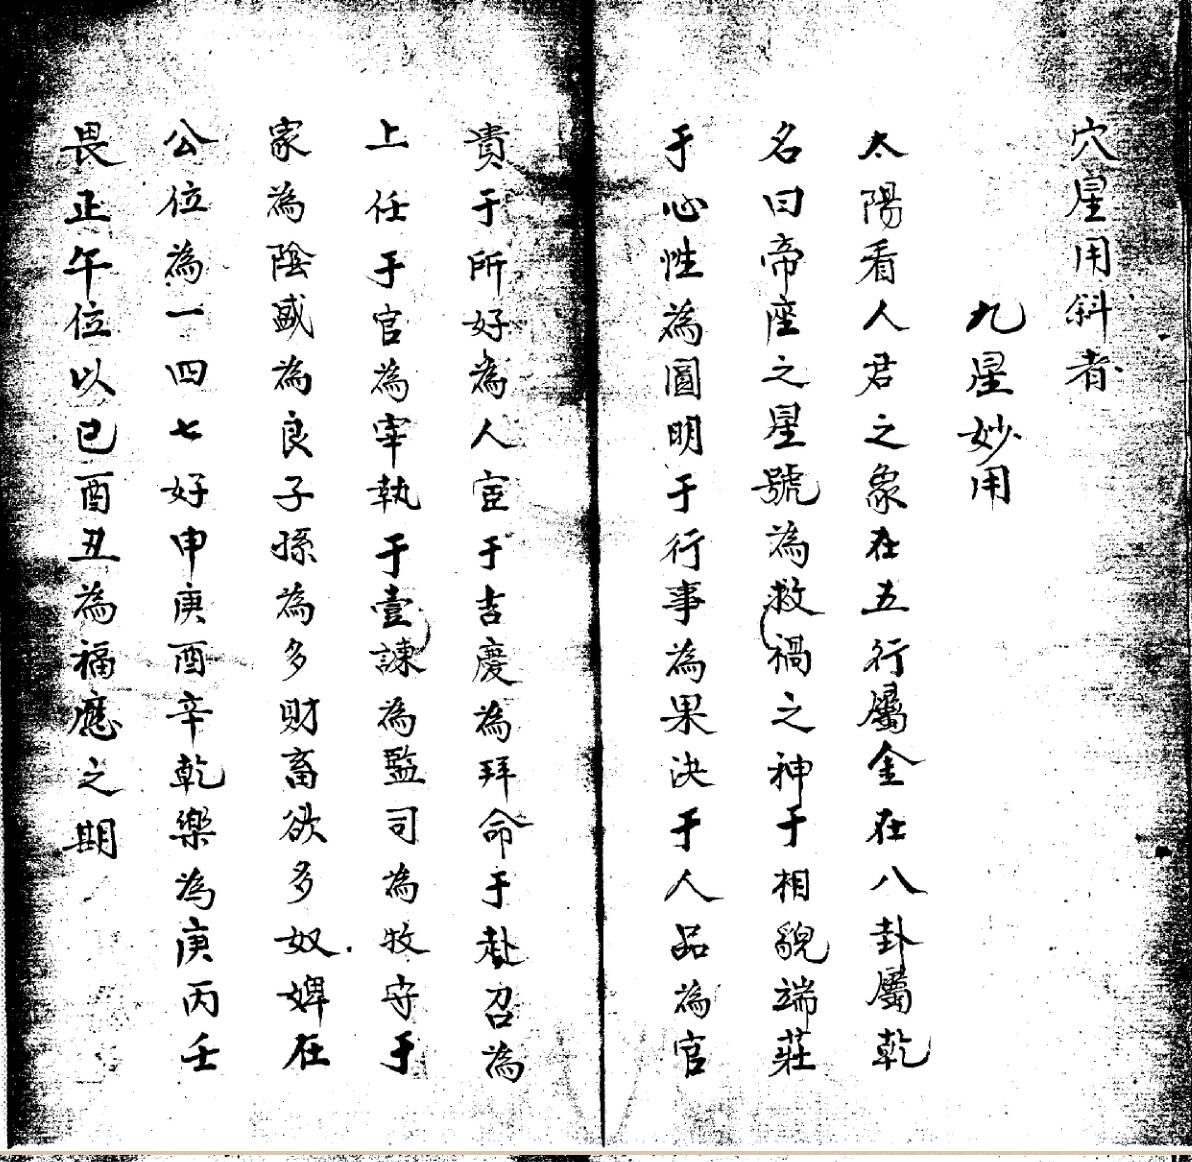 穴星用斜者
九星妙用
太陽看人君之象在五行屬金在八卦屬乾
名曰帝座之星號為救禍之神于相貌端莊
于心性為圓明于行事為果決于人品為官
貴于所好為人宦于吉慶為拜命于赴召為
上任于官為宰執于壹諫為監司為牧守于
家為陰盛為良子孫為多財畜欲多奴婢在
公位為一四七好申庚酉辛乾樂為庚丙壬
畏正午位以巳酉丑為福應之期